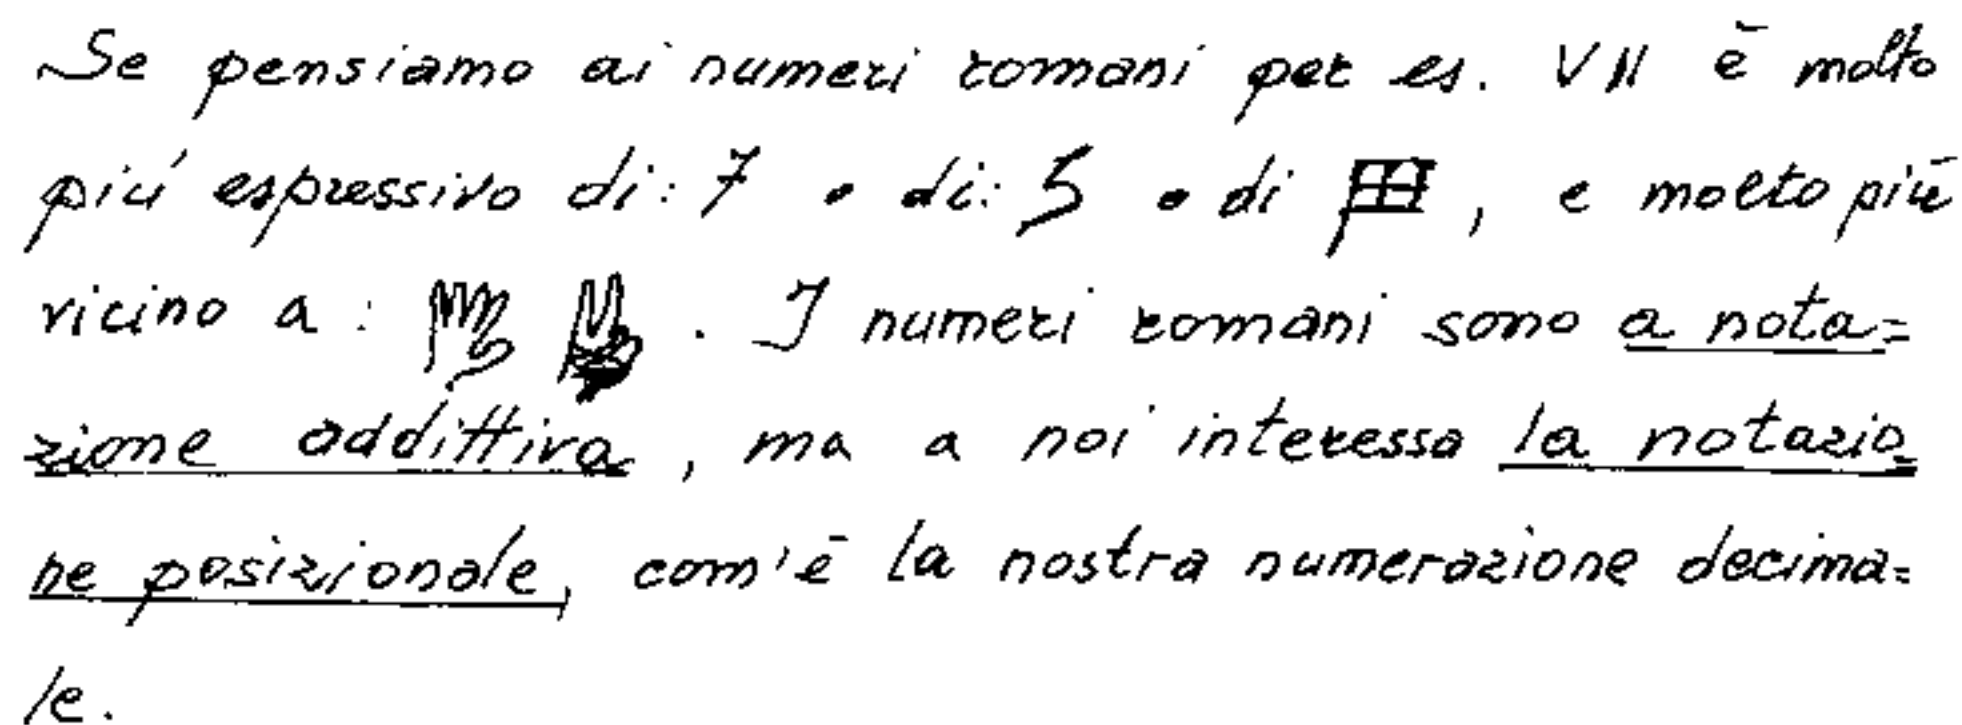 Se pensiamo ai numeri romani per es. VII è molto
più espressivo di: 7 o di: 5 o di , e molto più
vicino a : . I numeri romani sono a nota=
zione addittiva, ma a noi interessa la notazio=
ne posizionale, com'è la nostra numerazione decima=
le.